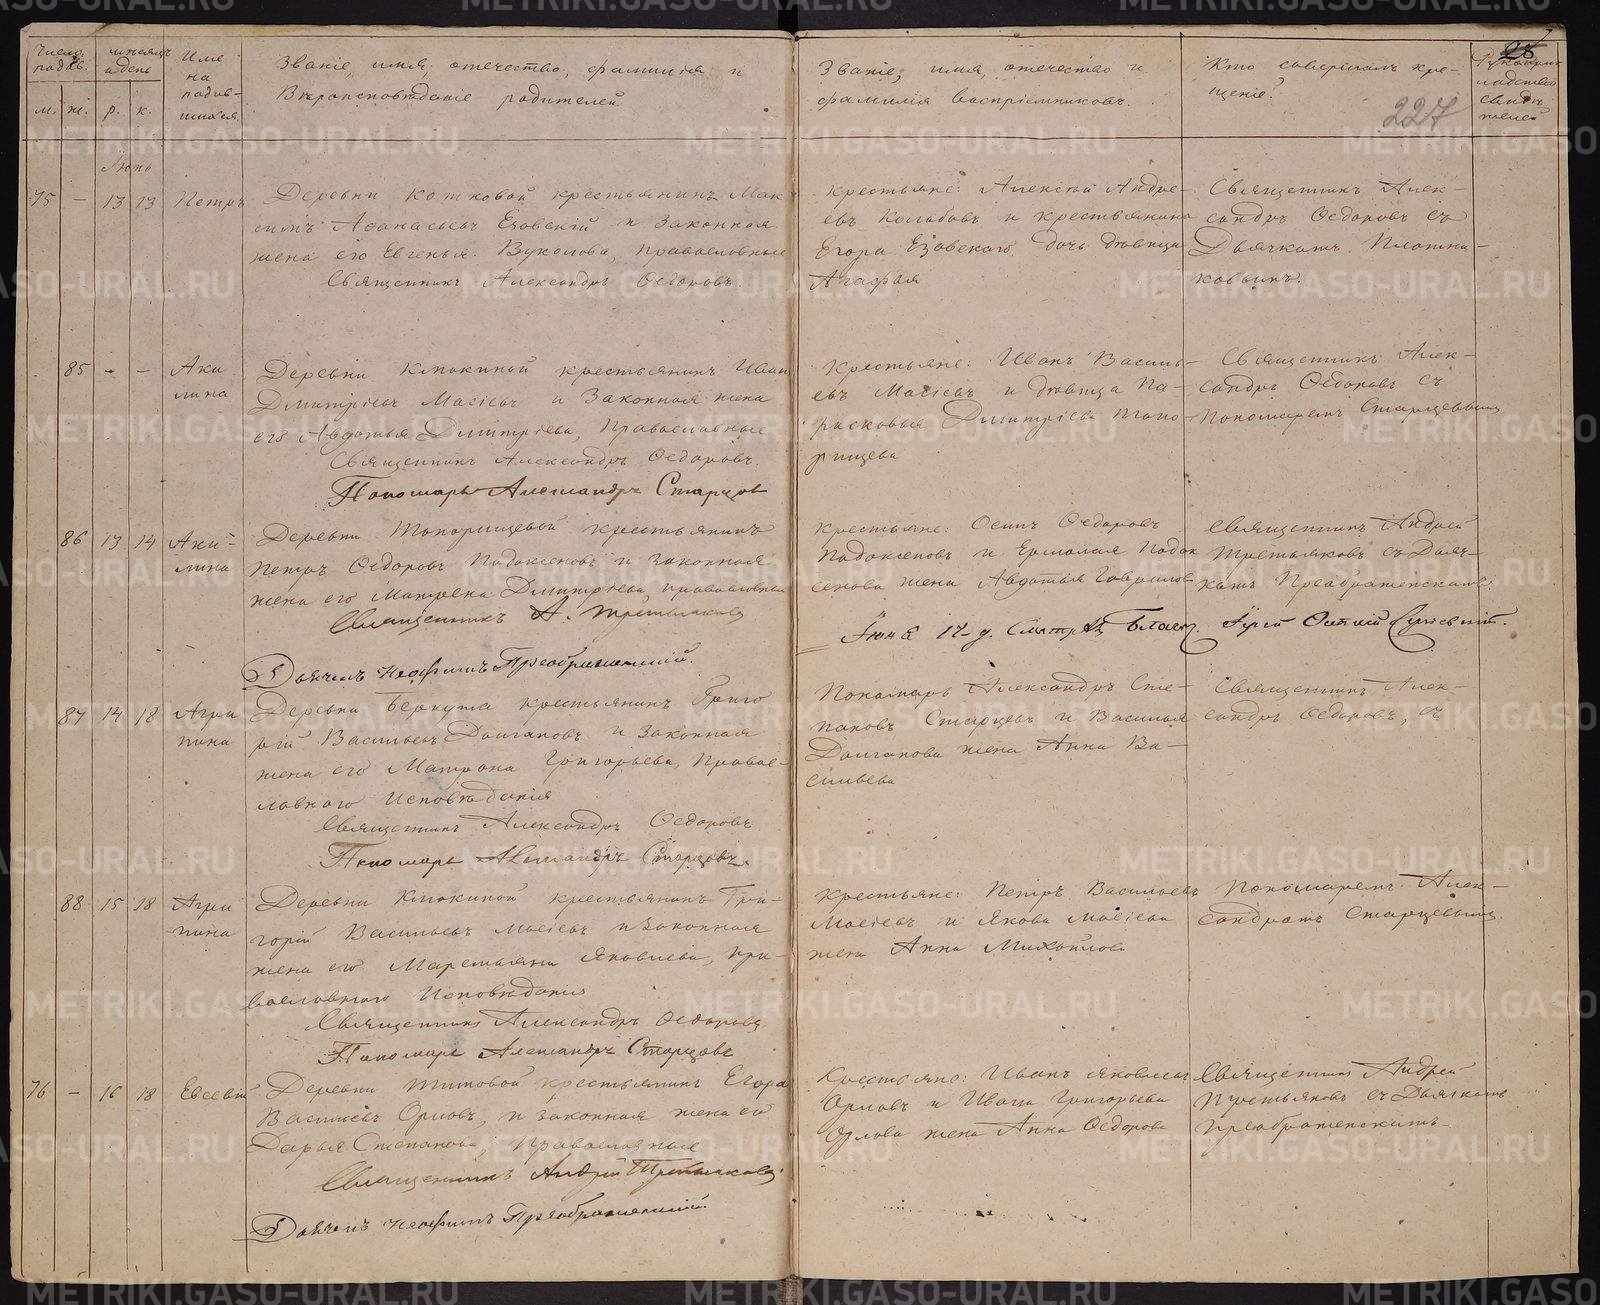 Число родив.
мѣсяцъ и день
Име
на
родив-
шихся
Званіе, имя, отчество, фамилія и
Вѣроисповѣданіе родителей
Званіе, имя, отчество и
фамилія воспріемниковъ.
Кто совершалъ кре-
щеніе?
227
28
м. ж. р. к.
Іюнь
75 - 13 13 Петръ
Деревни Котковой крестьянинъ Мак
симъ Аѳанасьевъ Езовскій и Законная
жена его Евгенья Вуколова, православные
Священникъ Александръ Ѳедоровъ.
крестьяне: Алексѣй Андре-
евъ Колобовъ и крестьянина
Егора Езовскаго дочь дѣвица
Агафья
Священникъ Алек-
сандръ Ѳедоровъ съ
Дьячкомъ Плотни-
ковымъ.
85 - - Аки
лина
Деревни Клюкиной крестьянинъ Иван
Дмитріевъ Масіевъ и Законная жена
его Авдотья Дмитріева, Православные
Священникъ Александръ Ѳедоровъ.
Пономарь Александръ Старцовъ
Крестьяне: Иванъ Василь-
евъ Масіевъ и дѣвица Па-
расковья Дмитріева Топо-
рищева
Священникъ Алек-
сандръ Ѳедоровъ съ
Пономаремъ Старцевымъ
86 13 14 Аки-
лина
Деревни Топорищевой крестьянинъ
Петръ Ѳедоровъ Подоксеновъ и законная
жена его Матрена Дмитріева, православные
Священникъ А. Третьяковъ
Дьячекъ Неофитъ Преображенскій.
крестьяне: Осипъ Ѳедоровъ
Подоксеновъ и Ермолая Подок
сенова жена Авдотія Гаврилов
Священникъ Андрей
Третьяковъ съ Дьяч-
комъ Преображенскимъ.
Іюня 17 д. Смотр. Благоч. Іерей
87 14 18 Агри
пина
Деревни Беркута крестьянинъ Григо
рій Васильевъ Долгановъ и Законная
жена его Матрона Григорьева, Правос-
лавнаго Исповѣданія
Священникъ Александръ Ѳедоровъ
Пономарь Александръ Старцовъ.
Пономарь Александръ Сте-
пановъ Старцевъ и Василья
Долганова жена Анна Ва-
сильева
Священникъ Алек-
сандръ Ѳедоровъ, съ
88 15 18 Агри
пина
Деревни Клюкиной крестьянинъ Гри-
горій Васильевъ Масіевъ и Законная
жена его Маремьяна Яковлева, пра-
вославнаго Исповѣданія
Священникъ Александръ Ѳедоровъ
Пономарь Александръ Старцовъ
Крестьяне: Петръ Васильевъ
Масіевъ и Якова Масіева
жена Анна Михайлова
Пономаремъ Алек-
сандромъ Старцевымъ
76 - 16 18 Евсевій
Деревни Титовой крестьянинъ Егоръ
Васильевъ Орловъ, и законная жена его
Дарья Степанова, Православные
Священникъ Андрей Третьяковъ.
Дьячекъ Неофитъ Преображенскій.
Крестьяне: Иванъ Яковлевъ
Орловъ и Ивана Григорьева
Орлова жена Анна Ѳедорова
Священникъ Андрей
Третьяковъ съ Дьячкомъ
Преображенскимъ.
METRIKI.GASO-URAL.RU